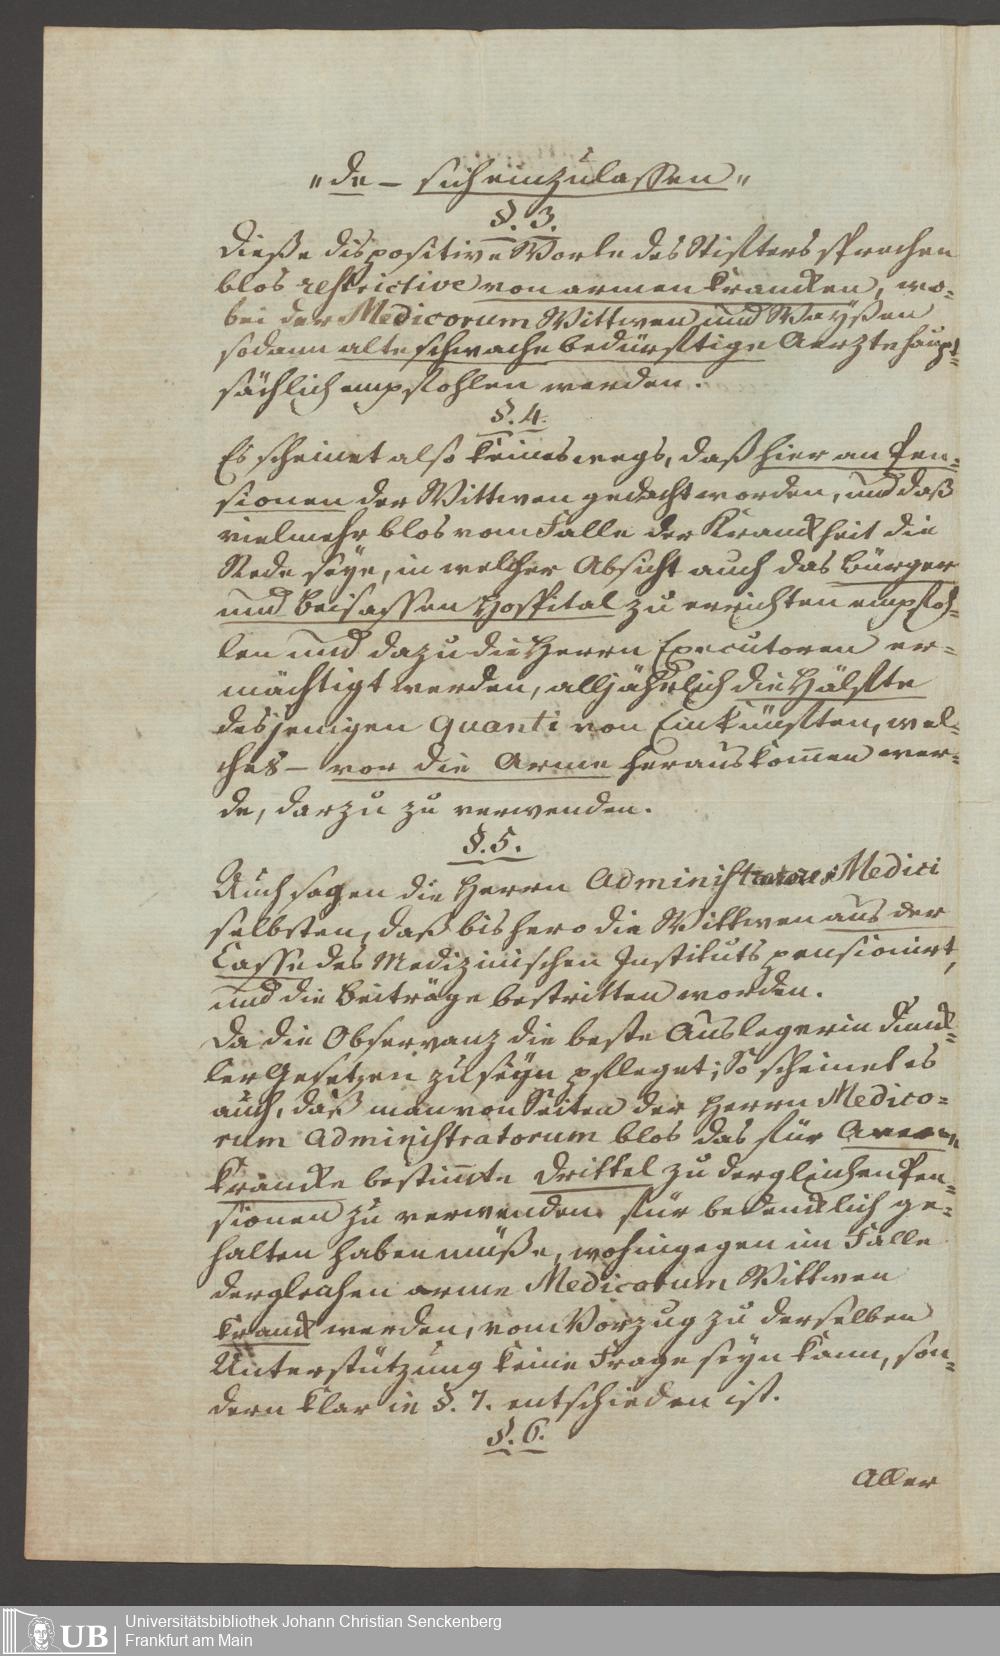 „de – sich einzulassen„
§. 3.
Dieße dispositive Worte des Stifters sprechen
blos restrictive von armen Krancken, wo-
bei der Medicorum Wittwen und Waysen
sodann alte schwache bedürftige Aerzte haupt-
sächlich empfohlen werden.
§. 4.
Es scheinet also keineswegs, daß hier an Pen-
sionen der Wittwen gedacht worden, und daß
vielmehr blos vom Falle der Kranckheit die
Rede seye, in welcher Absicht auch das Bürger
und Beisassen Hospital zu errichten empfoh-
len und dazu die Herrn Executoren er-
mächtigt werden, alljährlich die Hälfte
desjenigen Quanti von Einkünften, wel-
ches – vor die Arme herauskom̅en wer-
de, darzu zu verwenden.
§. 5.
Auch sagen die Herrn Administratores Medici
selbsten, daß bishero die Wittwen aus der
Casse des Medizinischen Instituts pensionirt,
und die Beiträge bestritten worden.
Da die Observanz die beste Auslegerin dunk-
ler Gesetzen zu seyn pfleget; So scheinet es
auch, daß man von Seiten der Herrn Medico-
rum Administratorum blos das für Arme
Krancke bestim̅te Drittel zu dergleichen Pen-
sionen zu verwenden für bedencklich ge-
halten haben müße, wohingegen im Falle
dergleichen arme Medicorum Wittwen
kranck werden, vom Vorzug zu derselben
Unterstützung keine Frage seyn kann, son-
dern klar in §. 7. entschieden ist.
§. 6.
Aller
UB
Universitätsbibliothek Johann Christian Senckenberg
Frankfurt am Main